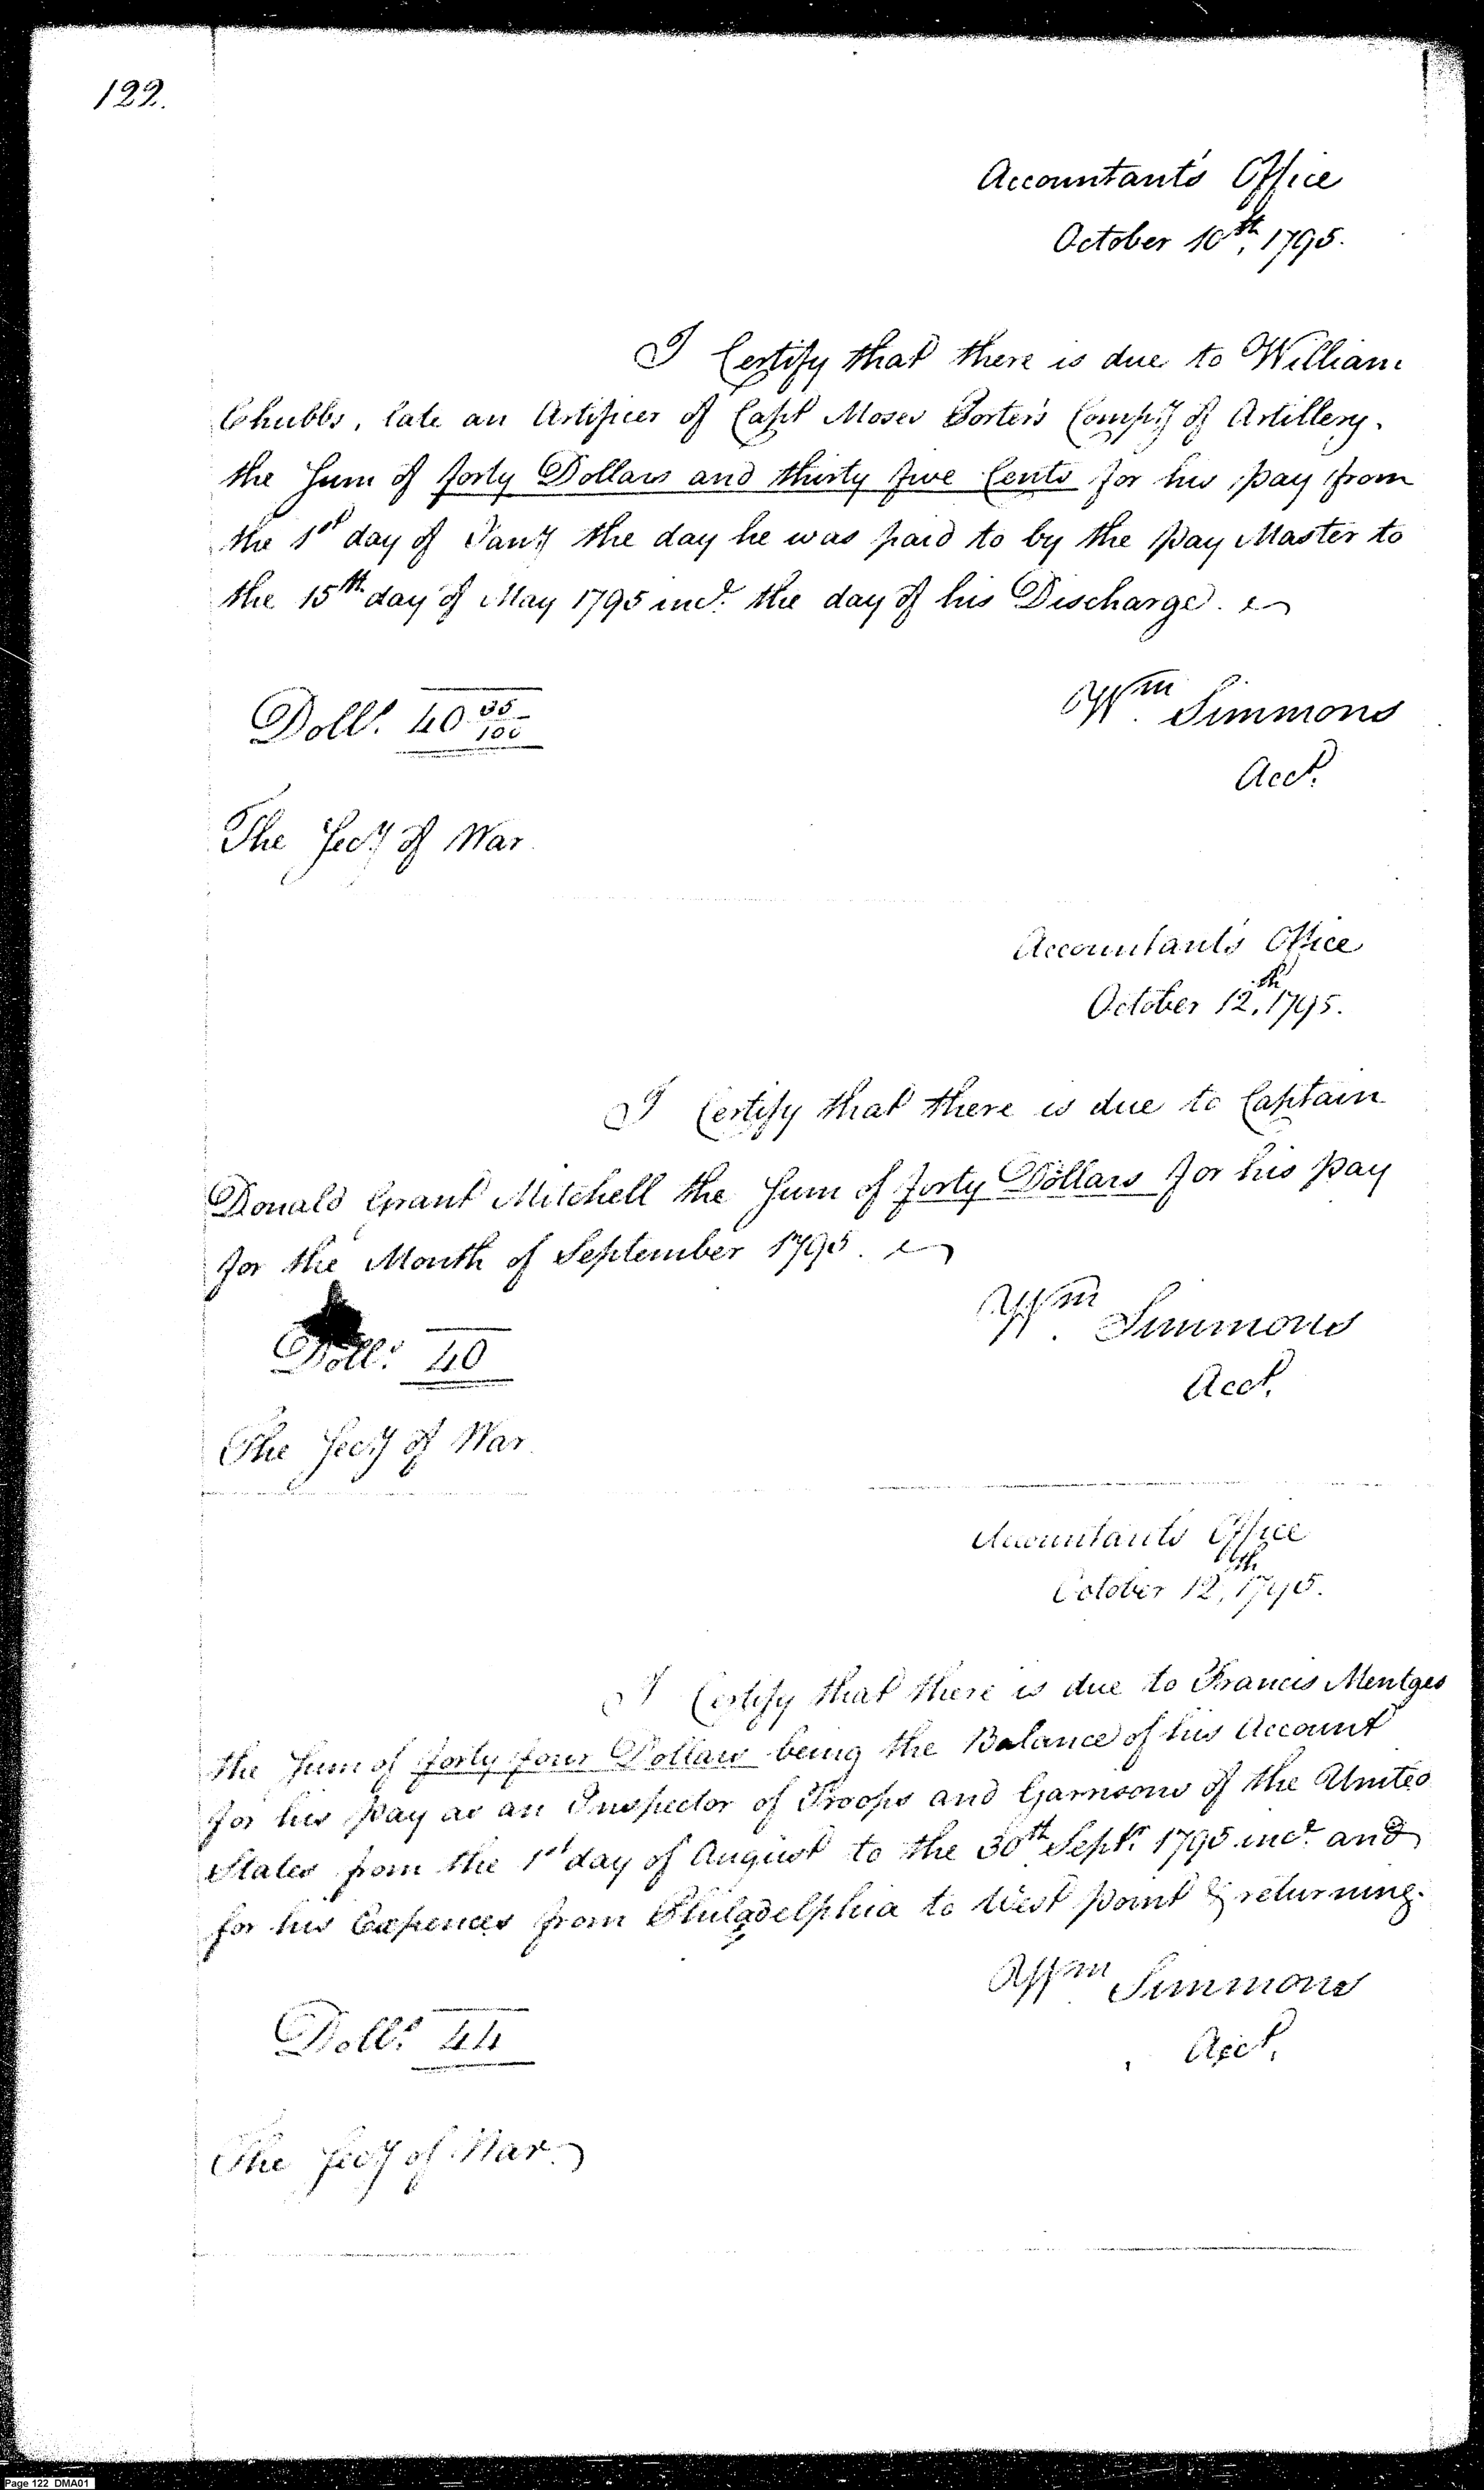 122.
Accountant's Office
October 10th, 1795.
I Certify that there is due to William
Chubbs, late an Artificer of Capt Moses Porter's Compy of Artillery.
the Sum of forty Dollars and thirty five Cents for his pay from
the 1st day of Jany the day he was paid to by the pay Master to
the 15th day of May 1795 incl. the day of his Discharge.
Dolls. 40 35/100
Wm Simmons
Acct.
The Secy of War.
Accountant's Office
October 12th, 1795.
I Certify that there is due to Captain
Donald Grant Mitchell the Sum of forty Dollars for his pay
for the Month of September 1795.
Wm Simmons
Dolls. 40
Acct.
The Secy of War.
Accountant's Office
October 12th, 1795.
I Certify that there is due to Francis Mentges
the Sum of forty four Dollars being the Balance of his Account
for his pay as an Inspector of Troops and Garrisons of the United
States from the 1st day of August to the 30th Septr. 1795 incl. and
for his Expences from Philadelphia to West point & returning.
Wm Simmons
Dolls. 44
Acct.
The Secy of War.
Page 122 DMA01